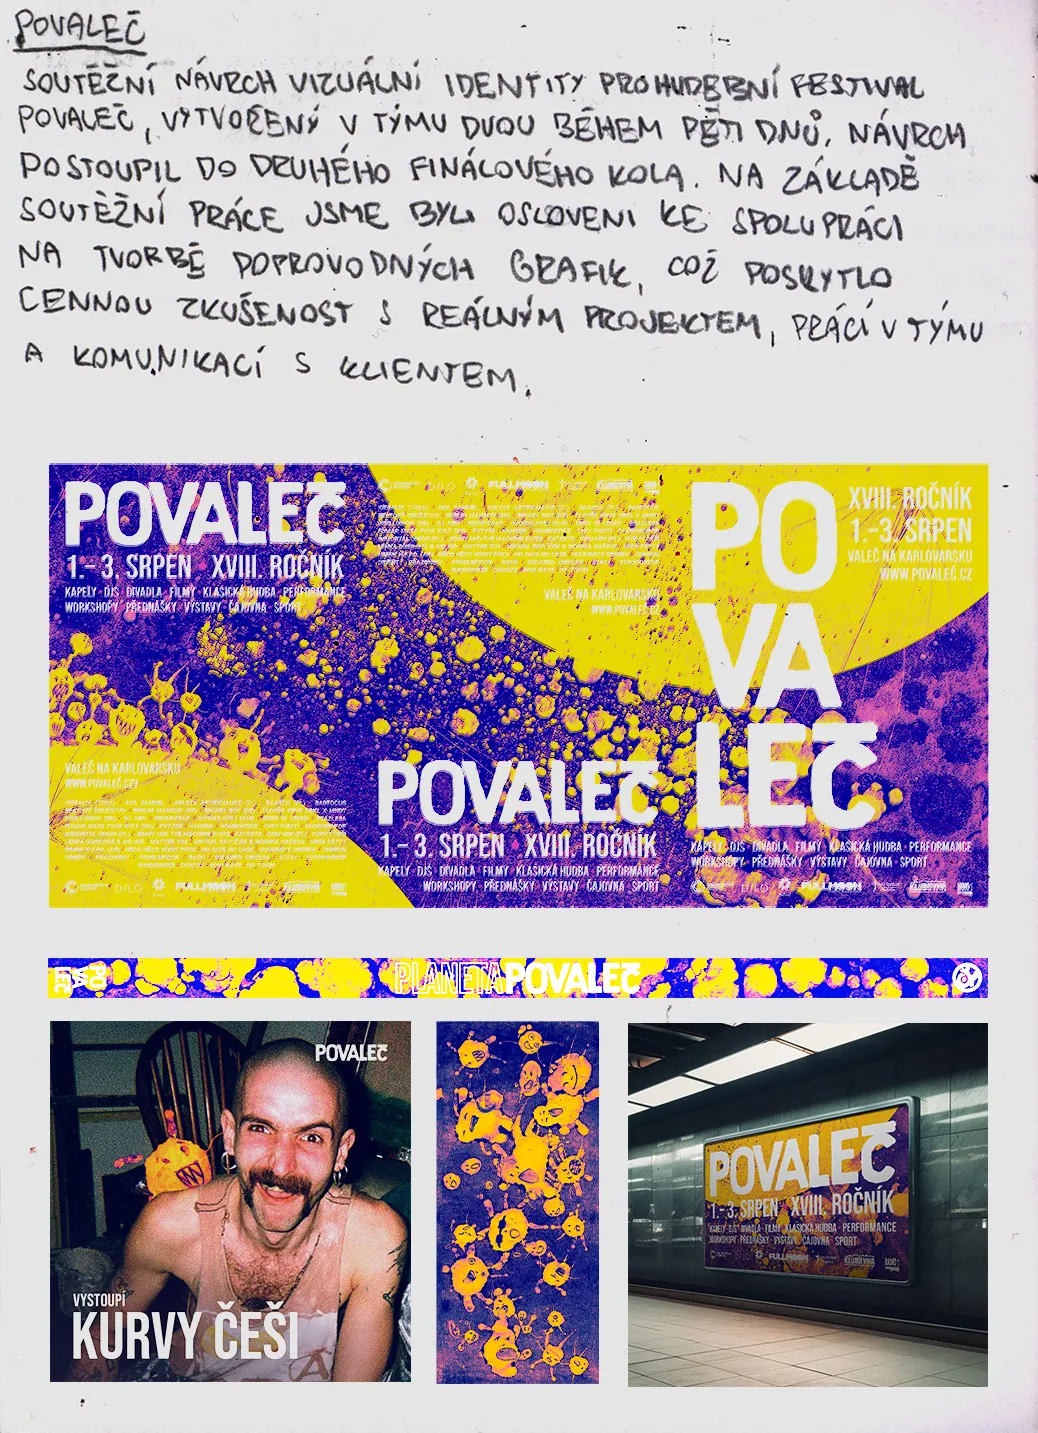 POVALEČ
SOUTĚŽNÍ NÁVRCH VIZUÁLNÍ IDENTITY PRO HUDEBNÍ FESTIVAL
POVALEČ, VYTVOŘENÝ V TÝMU DVOU BĚHEM PĚTI DNŮ. NÁVRCH
POSTOUPIL DO DRUHÉHO FINÁLOVÉHO KOLA. NA ZÁKLADĚ
SOUTĚŽNÍ PRÁCE JSME BYLI OSLOVENI KE SPOLUPRÁCI
NA TVORBĚ POPROVODNÝCH GRAFIK, COŽ POSKYTLO
CENNOU ZKUŠENOST S REÁLNÝM PROJEKTEM, PRÁCÍ V TÝMU
A KOMUNIKACÍ S KLIENTEM.
POVALEČ
1.– 3. SRPEN XVIII. ROČNÍK
KAPELY DJS DIVADLA FILMY KLASICKÁ HUDBA PERFORMANCE
WORKSHOPY PŘEDNÁŠKY VÝSTAVY ČAJOVNA SPORT
VALEČ NA KARLOVARSKU
WWW.POVALEČ.CZ
DILO FULLMOON
DILO FULLMOON
VALEČ NA KARLOVARSKU
WWW.POVALEČ.CZ
POVALEČ
1.– 3. SRPEN XVIII. ROČNÍK
KAPELY DJS DIVADLA FILMY KLASICKÁ HUDBA PERFORMANCE
WORKSHOPY PŘEDNÁŠKY VÝSTAVY ČAJOVNA SPORT
PO
VA
LEČ
XVIII. ROČNÍK
1.–3. SRPEN
VALEČ NA KARLOVARSKU
WWW.POVALEČ.CZ
KAPELY DJS DIVADLA FILMY KLASICKÁ HUDBA PERFORMANCE
WORKSHOPY PŘEDNÁŠKY VÝSTAVY ČAJOVNA SPORT
DILO FULLMOON
PO
VA
LEČ
PLANETA POVALEČ
POVALEČ
VYSTOUPÍ
KURVY ČEŠI
POVALEČ
1.–3. SRPEN XVIII. ROČNÍK
KAPELY DJS DIVADLA FILMY KLASICKÁ HUDBA PERFORMANCE
WORKSHOPY PŘEDNÁŠKY VÝSTAVY ČAJOVNA SPORT
FULLMOON RADIO 1